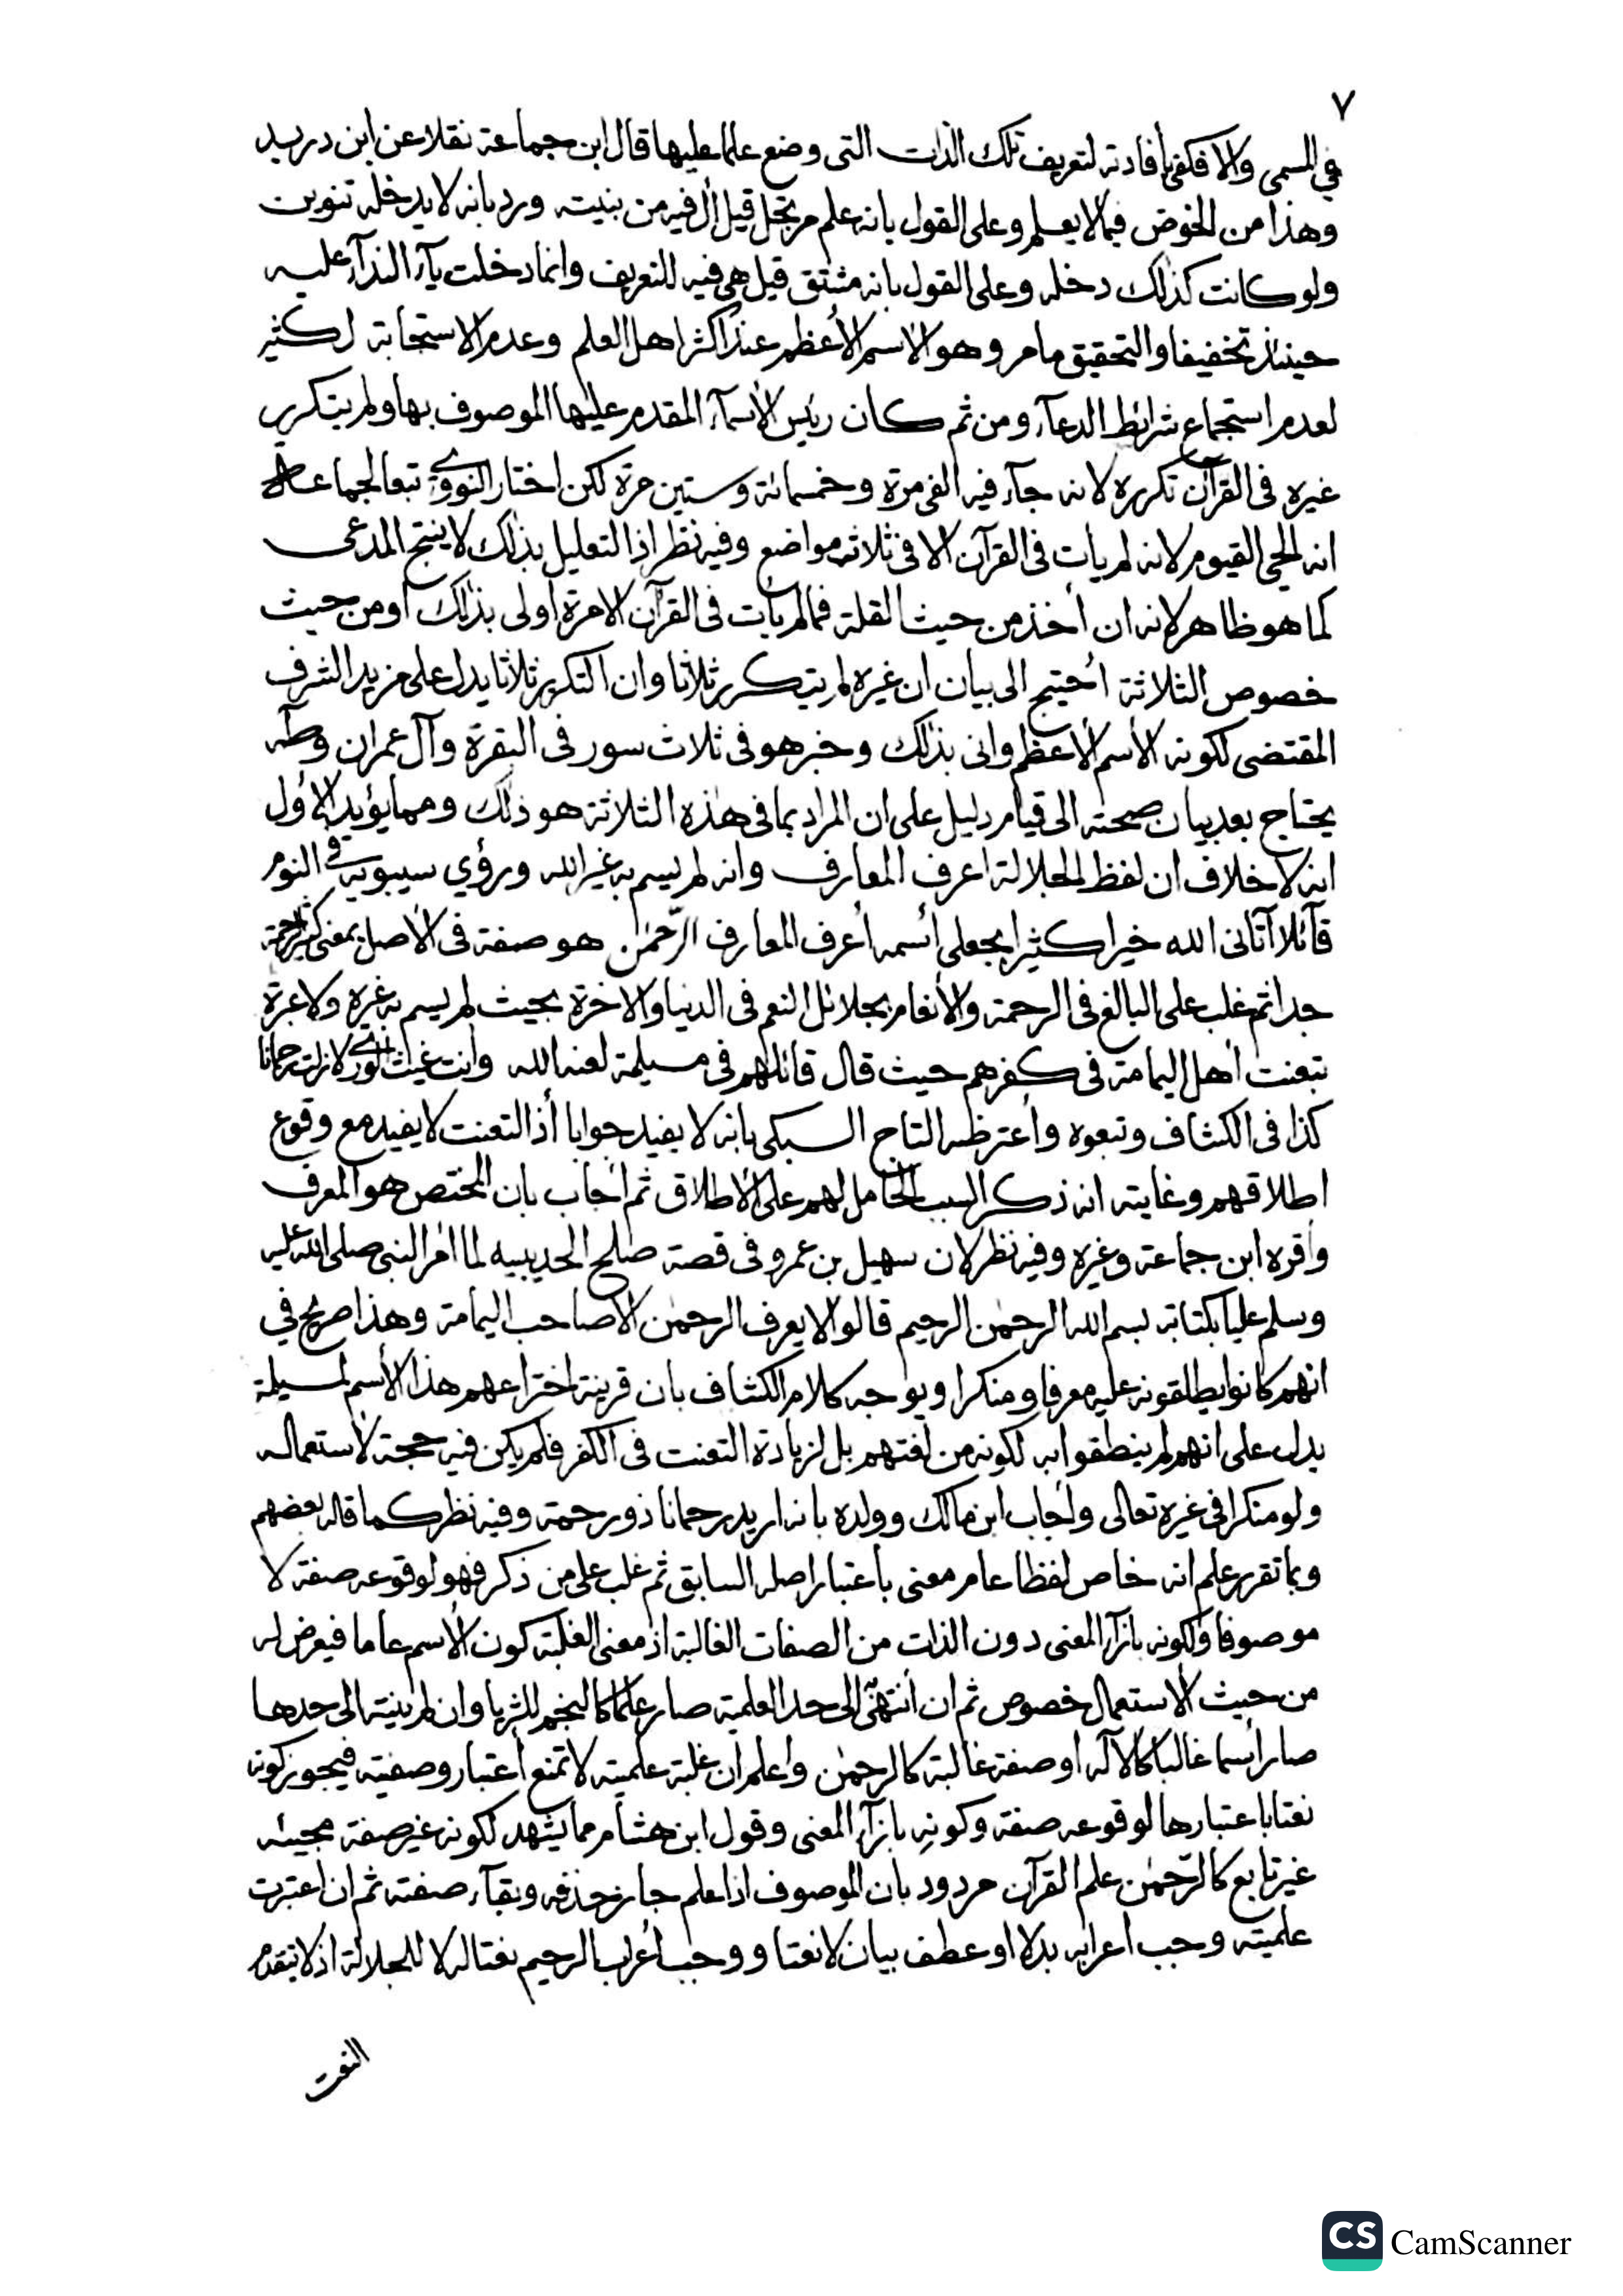 ٧
في المسمى والا فكفى بأفادته لتعريف تلك الذات التى وضع علما عليها قال ابن جماعة نقلا عن ابن دريد
وهذا من الخوض فيما لا يعلم وعلى القول بانه علم مرتجل قيل أل فيه من بنيته ورد بانه لا يدخله تنوين
ولو كانت كذلك دخله وعلى القول بانه مشتق قيل هى فيه للتعريف وانما دخلت يآء الندآء عليه
حينئذ تخفيفا والتحقيق ما مر وهو الاسم الأعظم عند اكثر اهل العلم وعدم الاستجابة لكثير
لعدم استجماع شرائط الدعآء ومن ثم كان رئيس الأسمآء المقدم عليها الموصوف بها ولم يتكرر
غيره فى القرآن تكرره لانه جآء فيه الفى مرة وخمسمائة وستين مرة لكن اختار النووي تبعا لجماعة
انه الحي القيوم لانه لم يأت فى القرآن الا فى ثلاثة مواضع وفيه نظر اذ التعليل بذلك لا ينتج المدعى
كما هو ظاهر لانه ان أخذ من حيث القلة فما لم يأت فى القرآن الا مرة أولى بذلك أو من حيث
خصوص الثلاثة أحتيج الى بيان ان غيره لم يتكرر ثلاثا وان التكرير ثلاثا يدل على مزيد الشرف
المقتضى لكونه الأسم الأعظم وانى بذلك وخبر هو فى ثلاث سور فى البقرة وآل عمران وطه
يحتاج بعد بيان صحته الى قيام دليل على ان المراد بما فى هذه الثلاثة هو ذلك ومما يؤيد الأول
انه لا خلاف ان لفظ الجلالة اعرف المعارف وانه لم يسم به غير الله ورؤي سيبويه في النوم
قآئلا آتانى الله خيرا كثيرا بجعلى أسمه أعرف المعارف الرّحمٰن هو صفة فى الأصل بمعنى كثير الرحمة
جدا ثم غلب على البالغ فى الرحمة والأنعام بجلائل النعم فى الدنيا والاخرة بحيث لم يسم به غيره ولا عبرة
بتعنت أهل اليمامة فى كفرهم حيث قال قائلهم فى مسيلمة لعنه الله وانت غيث الورى لا زلت رحمانا
كذا فى الكشاف وتبعوه وأعترضه التاج السبكى بانه لا يفيد جوابا أذ التعنت لا يفيد مع وقوع
اطلاقهم وغايته انه ذكر السبب الحامل لهم على الأطلاق ثم أجاب بان المختص هو المعرف
وأقره ابن جماعة وغيره وفيه نظر لان سهيل بن عمرو فى قصة صلح الحديبيه لما امر النبى صلى الله عليه
وسلم عليا بكتابة بسم الله الرحمٰن الرحيم قالوا لا يعرف الرحمٰن الا صاحب اليمامة وهذا صريح في
انهم كانوا يطلقونه عليه معرفا ومنكرا ويوجه كلام الكشاف بان قرينة اختراعهم هذا الأسم لمسيلمة
يدل على انهم لم ينطقوا به لكونه من لغتهم بل لزيادة التعنت فى الكفر فلم يكن فيه حجة لأستعماله
ولو منكرا فى غيره تعالى وأجاب ابن مالك وولده بانه اريد رحمانا ذو رحمة وفيه نظر كما قاله بعضهم
وبما تقرر علم انه خاص لفظا عام معنى بأعتبار اصله السابق ثم غلب على من ذكر فهو لوقوعه صفة لا
موصوفا ولكونه بازآء المعنى دون الذات من الصفات الغالبة اذ معنى الغلبة كون الأسم عاما فيعرض له
من حيث الأستعمال خصوص ثم ان أنتهى الى حد العلمية صار علما كالنجم للثريا وان لم ينته الى حدها
صار أسما غالبا كالآله او صفة غالبة كالرحمٰن وأعلم أن غلبة علميته لا تمنع أعتبار وصفيته فيجوز كونه
نعتا باعتبارها لوقوعه صفة وكونه بازآء المعنى وقول ابن هشام مما يشهد لكونه غير صفة مجيئه
غير تابع كالرّحمٰن علم القرآن مردود بان الموصوف اذا علم جاز حذفه وبقآء صفته ثم ان أعتبرت
علميته وجب اعرابه بدلا او عطف بيان لا نعتا ووجب أعراب الرحيم نعتا له لا للجلالة اذ لا يتقدم
النعت
CS CamScanner